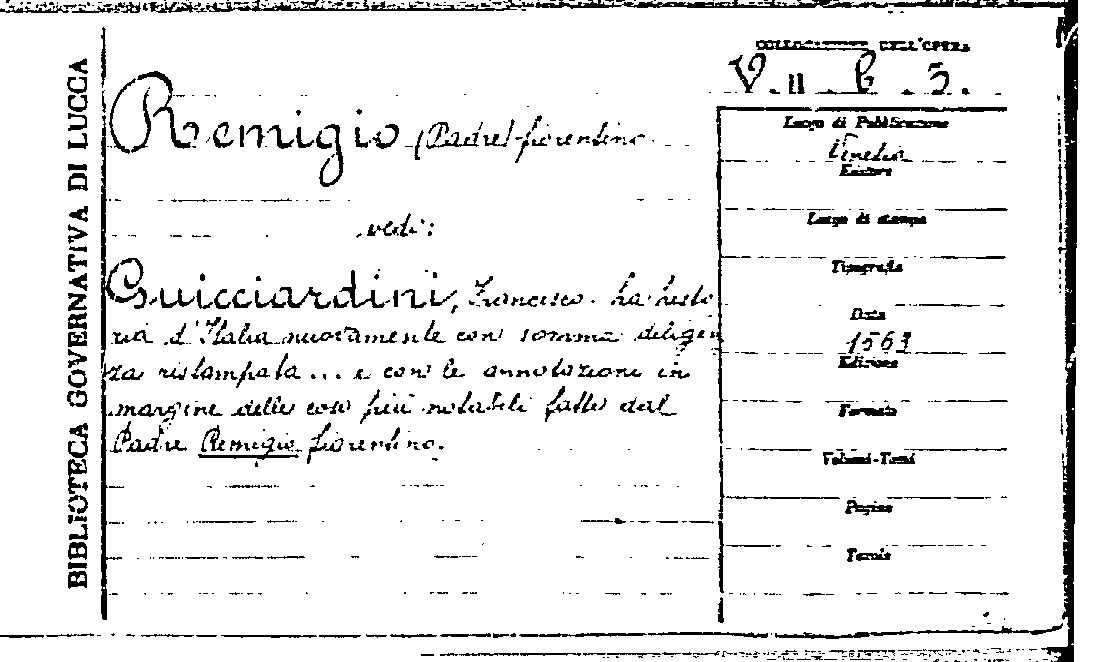 BIBLIOTECA GOVERNATIVA DI LUCCA
COLLOCAZIONE DELL'OPERA
V. II. b. 5.
Remigio (Padre) fiorentino
vedi:
Guicciardini, Francesco. La histo
ria d'Italia nuovamente con somma diligen
za ristampata... e con le annotazioni in
margine delle cose più notabili fatte dal
Padre Remigio fiorentino.
Luogo di Pubblicazione
Venezia
Editore
Luogo di stampa
Tipografia
Data
1563
Edizione
Formato
Volumi-Tomi
Pagine
Tavole